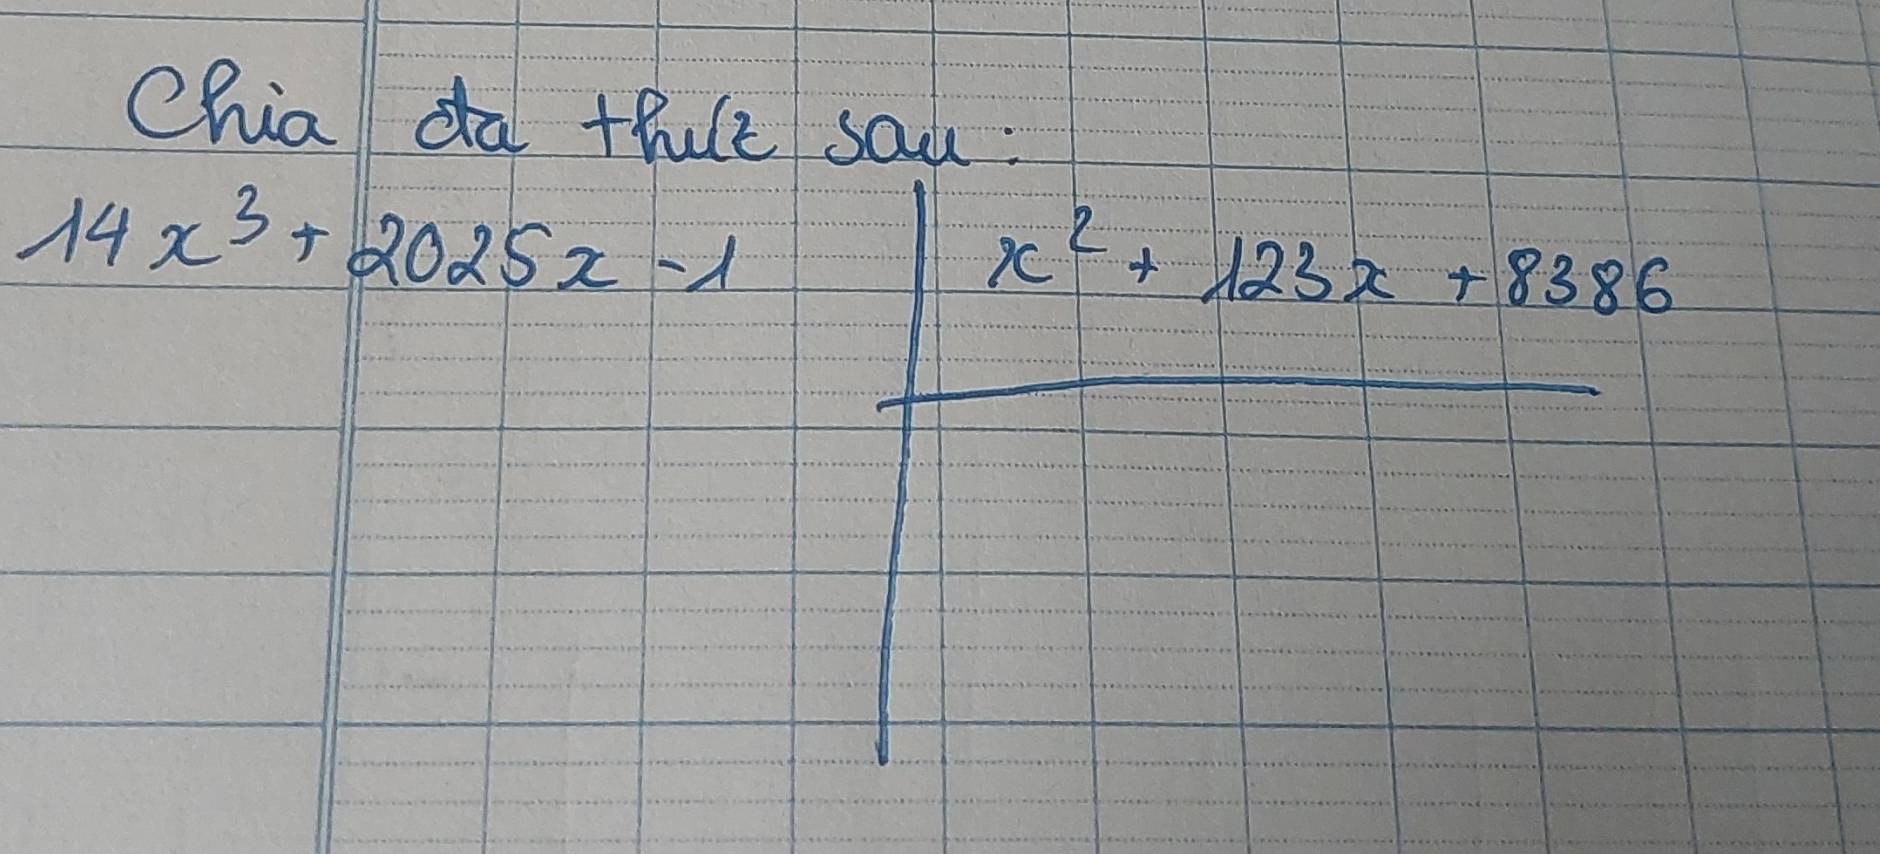 Chia đa thức sau:
14x³ + 2025x - 1 | x² + 123x + 8386